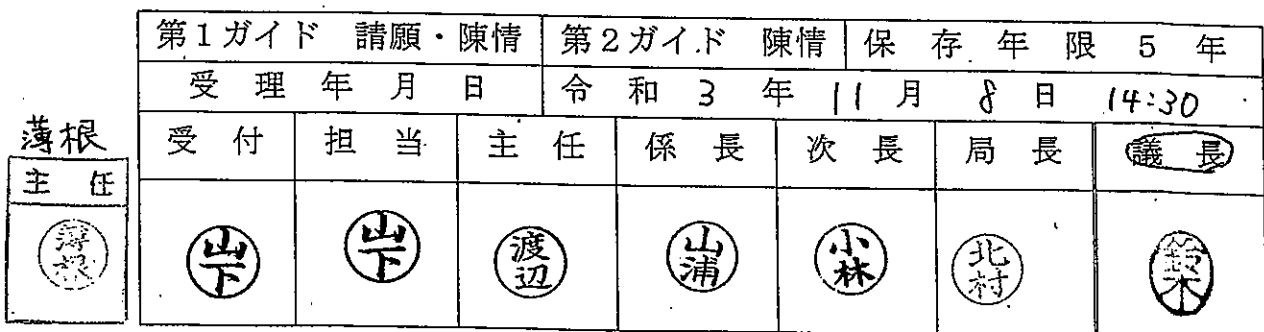 第1ガイド 請願・陳情 第2ガイド 陳情 保存年限 5年
受理年月日 令和3年11月8日 14:30
薄根
主任 受付 担当 主任 係長 次長 局長 議長
薄根 山下 山下 渡辺 山浦 小林 北村 鈴木